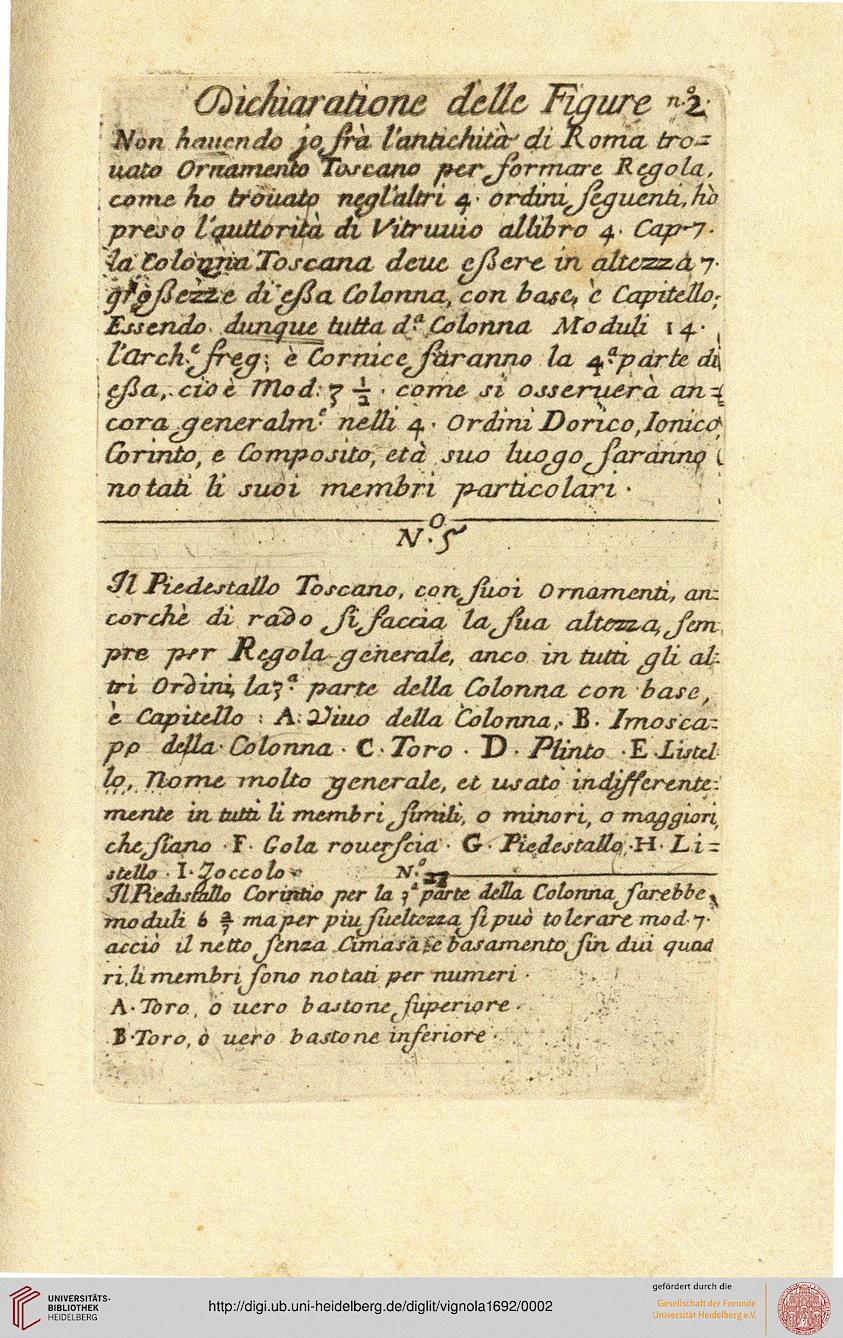 Dichiaratione delle Figure n.º 2.
Non hauendo jo frà l'antichità di Roma tro=
uato Ornamento Toscano per formare Regola,
come ho trouato negl'altri 4. ordini seguenti, hò
preso l'auttorità di Vitruuio allibro 4. Cap. 7.
la Colonna Toscana deue eßere in altezza 7.
großezze di eßa Colonna, con base, è Capitello;
Essendo dunque tutta d.ª Colonna Moduli 14.
l'Arch.e freg: è Cornice saranno la 4.ª parte di
eßa, cioè Mod: 3 1/2 . come si osseruerà an=
cora generalm.e nelli 4. Ordini Dorico, Ionico
Corinto, e Composito, età suo luogo saranno i
notati li suoi membri particolari .
N.º 5
Il Piedestallo Toscano, con suoi Ornamenti, an=
corchè di rado si faccia la sua altezza, sem
pre per Regola generale, anco in tutti gli al=
tri Ordini, la 3.ª parte della Colonna con base,
è Capitello : A: Viuo della Colonna, B. Imosca=
po della Colonna . C. Toro . D . Plinto . E Listel
lo, Nome molto generale, et usato indifferente=
mente in tutti li membri simili, o minori, o maggiori,
che siano . F. Gola rouerscia . G. Piedestallo . H. Li=
stello . I. Zoccolo .
N.º
Il Piedistallo Corintio per la 3.ª parte della Colonna sarebbe
moduli 6 2/3 ma per piu sueltezza si può tolerare mod. 7.
acciò il netto senza Cimasa e basamento sin dui quad
ri, li membri sono notati per numeri .
A. Toro, ò uero bastone superiore .
B. Toro, ò uero bastone inferiore .
UNIVERSITÄTS-
BIBLIOTHEK
HEIDELBERG
http://digi.ub.uni-heidelberg.de/diglit/vignola1692/0002
gefördert durch die
Gesellschaft der Freunde
Universität Heidelberg e.V.